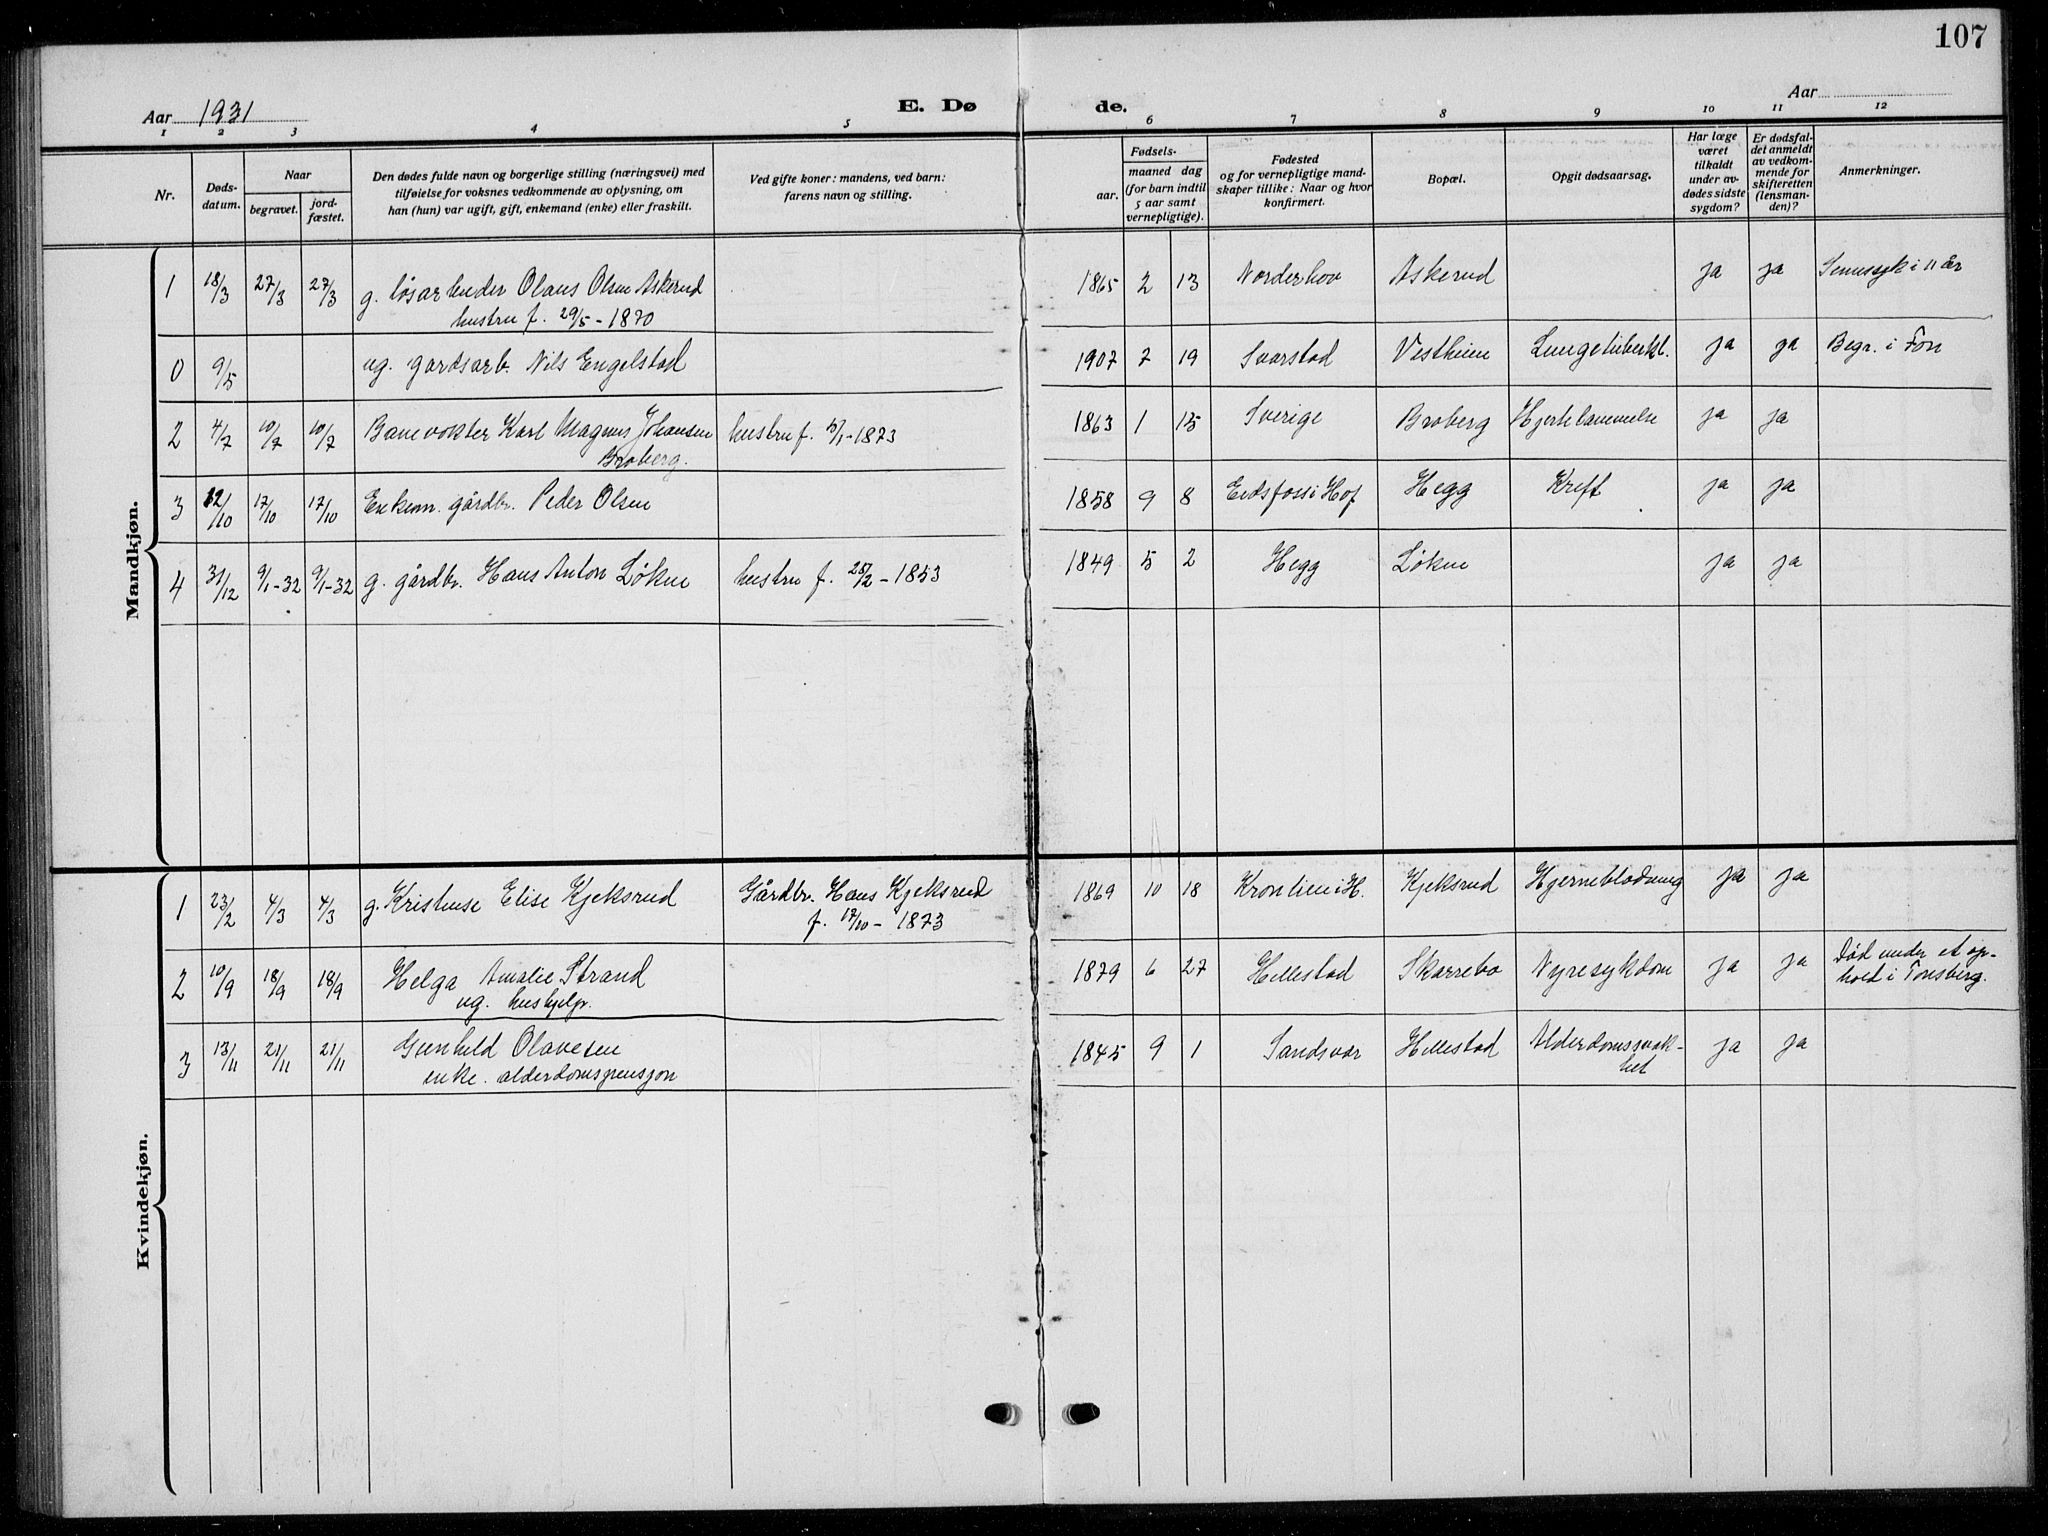 107
Aar 1931
E. Dø
de.
Aar
1 2 3 4 5 6 7 8 9 10 11 12
Nr.
Døds-
datum.
Naar
begravet.
jord-
fæstet.
Den dødes fulde navn og borgerlige stilling (næringsvei) med
tilføielse for voksnes vedkommende av oplysning, om
han (hun) var ugift, gift, enkemand (enke) eller fraskilt.
Ved gifte koner: mandens, ved barn:
farens navn og stilling.
Fødsels-
aar.
maaned dag
(for barn indtil
5 aar samt
vernepligtige).
Fødested
og for vernepligtige mand-
skaper tillike: Naar og hvor
konfirmert.
Bopæl.
Opgit dødsaarsag.
Har læge
været
tilkaldt
under av-
dødes sidste
sygdom?
Er dødsfal-
det anmeldt
av vedkom-
mende for
skifteretten
(lensman-
den)?
Anmerkninger.
Mandkjøn.
1 18/3 27/3 27/3 g. løsarbeider Olaus Olsen Askerud 1865 2 13 Norderhov Askerud ja ja Sinnssyk i 11 år
hustru f. 29/5 - 1870
0 9/5 ug. gårdsarb. Nils Engelstad 1907 7 19 Svarstad Vestheim Lungetuberkl. ja ja Begr. i Fon
2 4/7 10/7 10/7 Banevokter Karl Magnus Johansen hustru f. 5/1-1873 1863 1 15 Sverige Broberg Hjertelammelse ja ja
Broberg.
3 12/10 17/10 17/10 Enkem. gårdbr. Peder Olsen 1858 9 8 Eidsfoss i Hof Hegg Kreft ja ja
4 31/12 9/1-32 9/1-32 g. gårdbr. Hans Anton Løkne hustru f. 28/2 - 1853 1849 5 2 Hegg Løkne ja ja
Kvindekjøn.
1 23/2 4/3 4/3 g. Kristine Elise Kjeksrud Gårdbr. Hans Kjeksrud 1869 10 18 Kronlien i H. Kjeksrud Hjerneblødning ja ja
f. 17/10 - 1873
2 10/9 18/9 18/9 Helga Amalie Strand 1879 6 27 Hillestad Skarrebo Nyresykdom ja ja Død under et op-
ug. hushjelp. hold i Tønsberg.
3 13/11 21/11 21/11 Gunhild Olavesen 1845 9 1 Sandsvær Hillestad Alderdomssvak- ja ja
enke. alderdomspensjon het